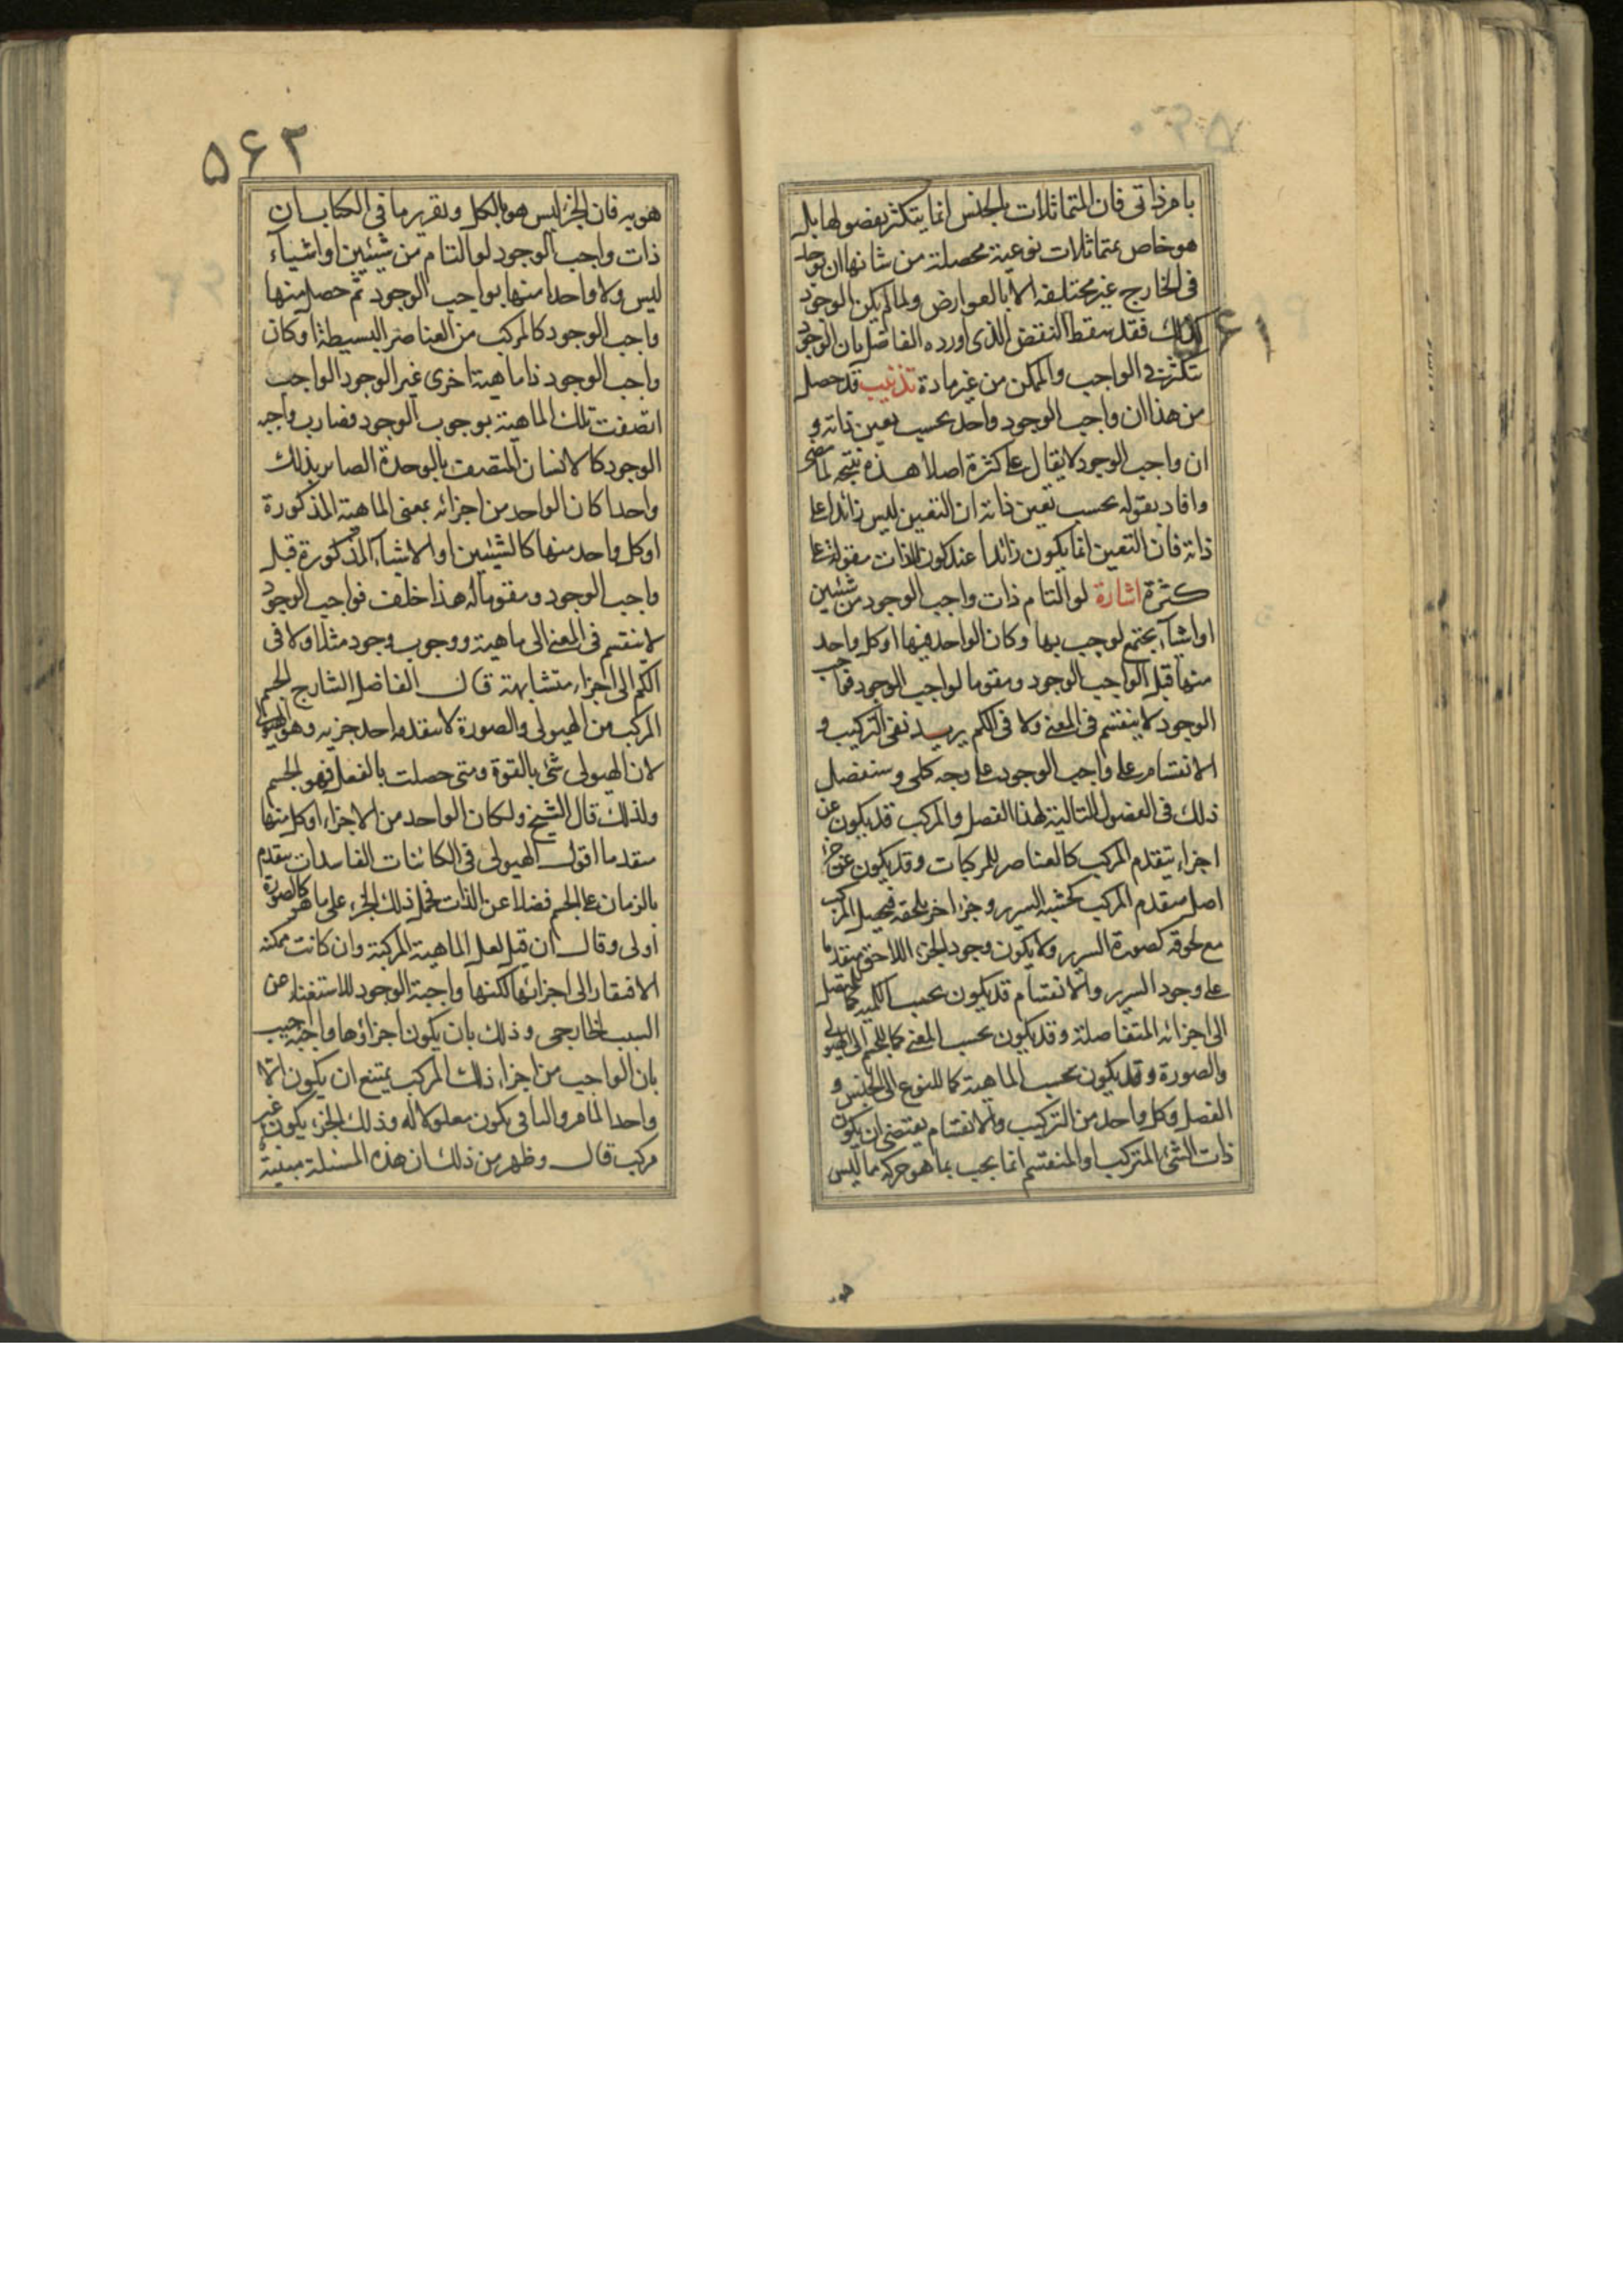 بامر ذاتی فان المتماثلات بالجنس انما یتکثر بفصولها بل
هو خاص بمتماثلات نوعیة محصلة من شانها ان توجد
فی الخارج غیر مختلفة الا بالعوارض ولما لم یکن الوجود
کذلک فقد سقط النقض الذی اورده الفاضل بان الوجود
۵۶۱
یتکثر فی الواجب والممکن من غیر مادة تذنیب قد حصل
من هذا ان واجب الوجود واحد بحسب تعین ذاته و
ان واجب الوجود لا یقال علی کثرة اصلا هذه نتیجة لما مضی
وافاد بقوله بحسب تعین ذاته ان التعین لیس زائدا علی
ذاته فان التعین انما یکون زائدا عند کون الذات مقولة علی
کثرة اشارة لو التام ذات واجب الوجود من شیئین
او اشیاء یجتمع لوجب بها وکان الواحد منها او کل واحد
منها قبل الواجب الوجود ومقوما لواجب الوجود فواجب
الوجود لا ینقسم فی المعنی ولا فی الکم یرید نفی الترکیب و
الانقسام علی واجب الوجود علی وجه کلی وسنفصل
ذلک فی الفصول التالیة لهذا الفصل والمرکب قد یکون عن
اجزاء یتقدم المرکب کالعناصر للمرکبات وقد یکون عن جزء
اصل یتقدم المرکب کخشبة السریر وجزء اخر یلحقه فیحصل المرکب
مع لحوقه کصورة السریر ولا یکون وجود الجزء اللاحق متقدما
علی وجود السریر والانقسام قد یکون بحسب الکمیة کما للمتصل
الی اجزائه المتفاصلة وقد یکون بحسب المعنی کما للجسم الی الهیولی
والصورة وقد یکون بحسب الماهیة کما للنوع الی الجنس و
الفصل وکل واحد من الترکیب والانقسام یقتضی ان یکون
ذات الشئ المترکب او المنقسم انما یجب بما هو جزء مما لیس
هو
۵۶۲
هو به فان الجزء لیس هو بالکل وتقریر ما فی الکتاب ان
ذات واجب الوجود لو التام من شیئین او اشیآء
لیس ولا واحدا منها بواجب الوجود ثم حصل منها
واجب الوجود کالمرکب من العناصر البسیطة او کان
واجب الوجود ذا ماهیة اخری غیر الوجود الواجب
اتصفت تلک الماهیة بوجوب الوجود فصارت واجبة
الوجود کالانسان المتصف بالوحدة الصایر بذلک
واحدا کان الواحد من اجزائه بمعنی الماهیة المذکورة
او کل واحد منها کالشیئین او الاشیآء المذکورة قبل
واجب الوجود ومقوما له هذا خلف فواجب الوجود
لا ینقسم فی المعنی الی ماهیة ووجوب وجود مثلا ولا فی
الکم الی اجزاء متشابهة قال الفاضل الشارح الجسم
المرکب من الهیولی والصورة لا یتقدمه احد جزئیه وهو الهیولی
لان الهیولی شئ بالقوة ومتی حصلت بالفعل فهو الجسم
ولذلک قال الشیخ ولکان الواحد من الاجزاء او کل منها
متقدما اقول الهیولی فی الکائنات الفاسدات یتقدم
بالزمان علی الجسم فضلا عن الذات فحمل ذلک الجزء علی ما هو کالصورة
اولی وقال ان قیل لعل الماهیة المرکبة وان کانت ممکنة
الافتقار الی اجزائها لکنها واجبة الوجود للاستغناء عن
السبب الخارجی وذلک بان یکون اجزاؤها واجبة اجیب
بان الواجب من اجزاء ذلک المرکب یمتنع ان یکون الا
واحدا لما مر والباقی یکون معلولا له وذلک الجزء یکون غیر
مرکب قال وظهر من ذلک ان هذه المسئلة مبنیة